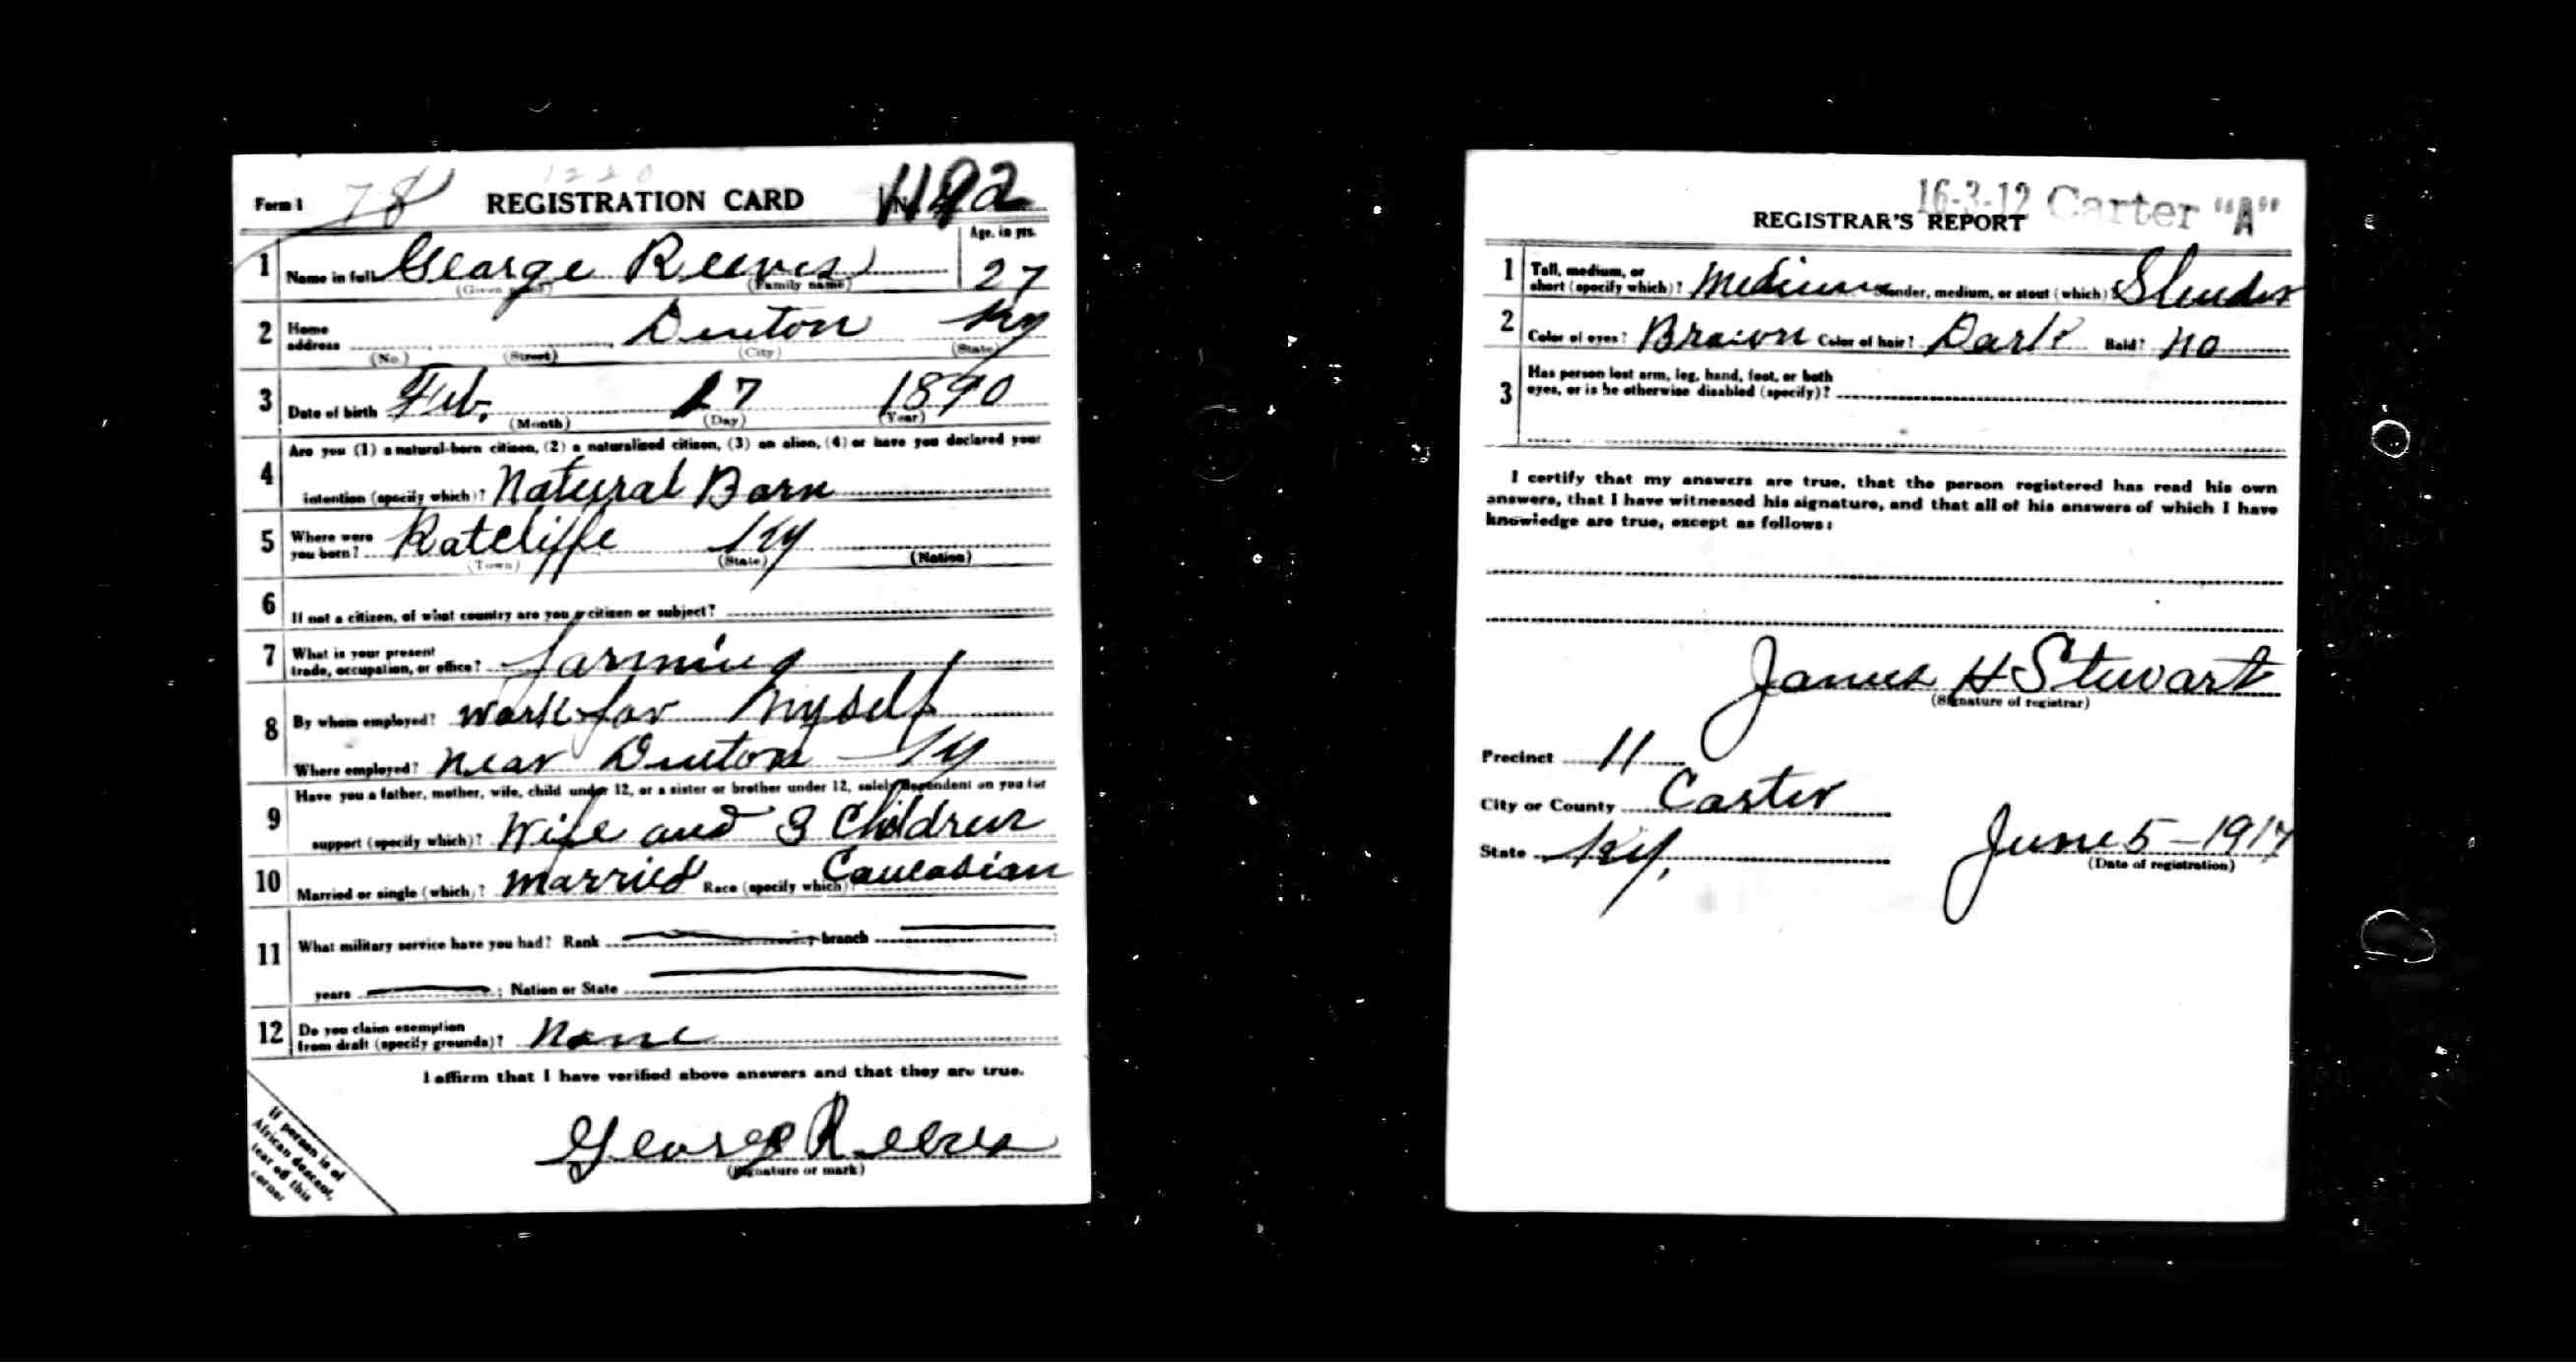 Form 1 78 REGISTRATION CARD No. 1192
1 Name in full George Reeves Age, in yrs. 27
(Given name) (Family name)
2 Home address Denton Ky
(No.) (Street) (City) (State)
3 Date of birth Feb. 27 1890
(Month) (Day) (Year)
4 Are you (1) a natural-born citizen, (2) a naturalized citizen, (3) an alien, (4) or have you declared your
intention (specify which)? Natural Born
5 Where were you born? Ratcliffe Ky
(Town) (State) (Nation)
6 If not a citizen, of what country are you a citizen or subject?
7 What is your present
trade, occupation, or office? farming
8 By whom employed? Work for Myself
Where employed? near Denton Ky
9 Have you a father, mother, wife, child under 12, or a sister or brother under 12, solely dependent on you for
support (specify which)? Wife and 3 Children
10 Married or single (which)? married Race (specify which)? Caucasian
11 What military service have you had? Rank ; branch ;
years ; Nation or State
12 Do you claim exemption
from draft (specify grounds)? None
I affirm that I have verified above answers and that they are true.
George Reeves
(Signature or mark)
If person is of
African descent,
tear off this
corner
16-3-12 Carter "A"
REGISTRAR'S REPORT
1 Tall, medium, or
short (specify which)? Medium Slender, medium, or stout (which)? Slender
2 Color of eyes? Brown Color of hair? Dark Bald? no
3 Has person lost arm, leg, hand, foot, or both
eyes, or is he otherwise disabled (specify)?
I certify that my answers are true, that the person registered has read his own
answers, that I have witnessed his signature, and that all of his answers of which I have
knowledge are true, except as follows:
James H Stewart
(Signature of registrar)
Precinct 11
City or County Carter
State Ky.
June 5-1917
(Date of registration)